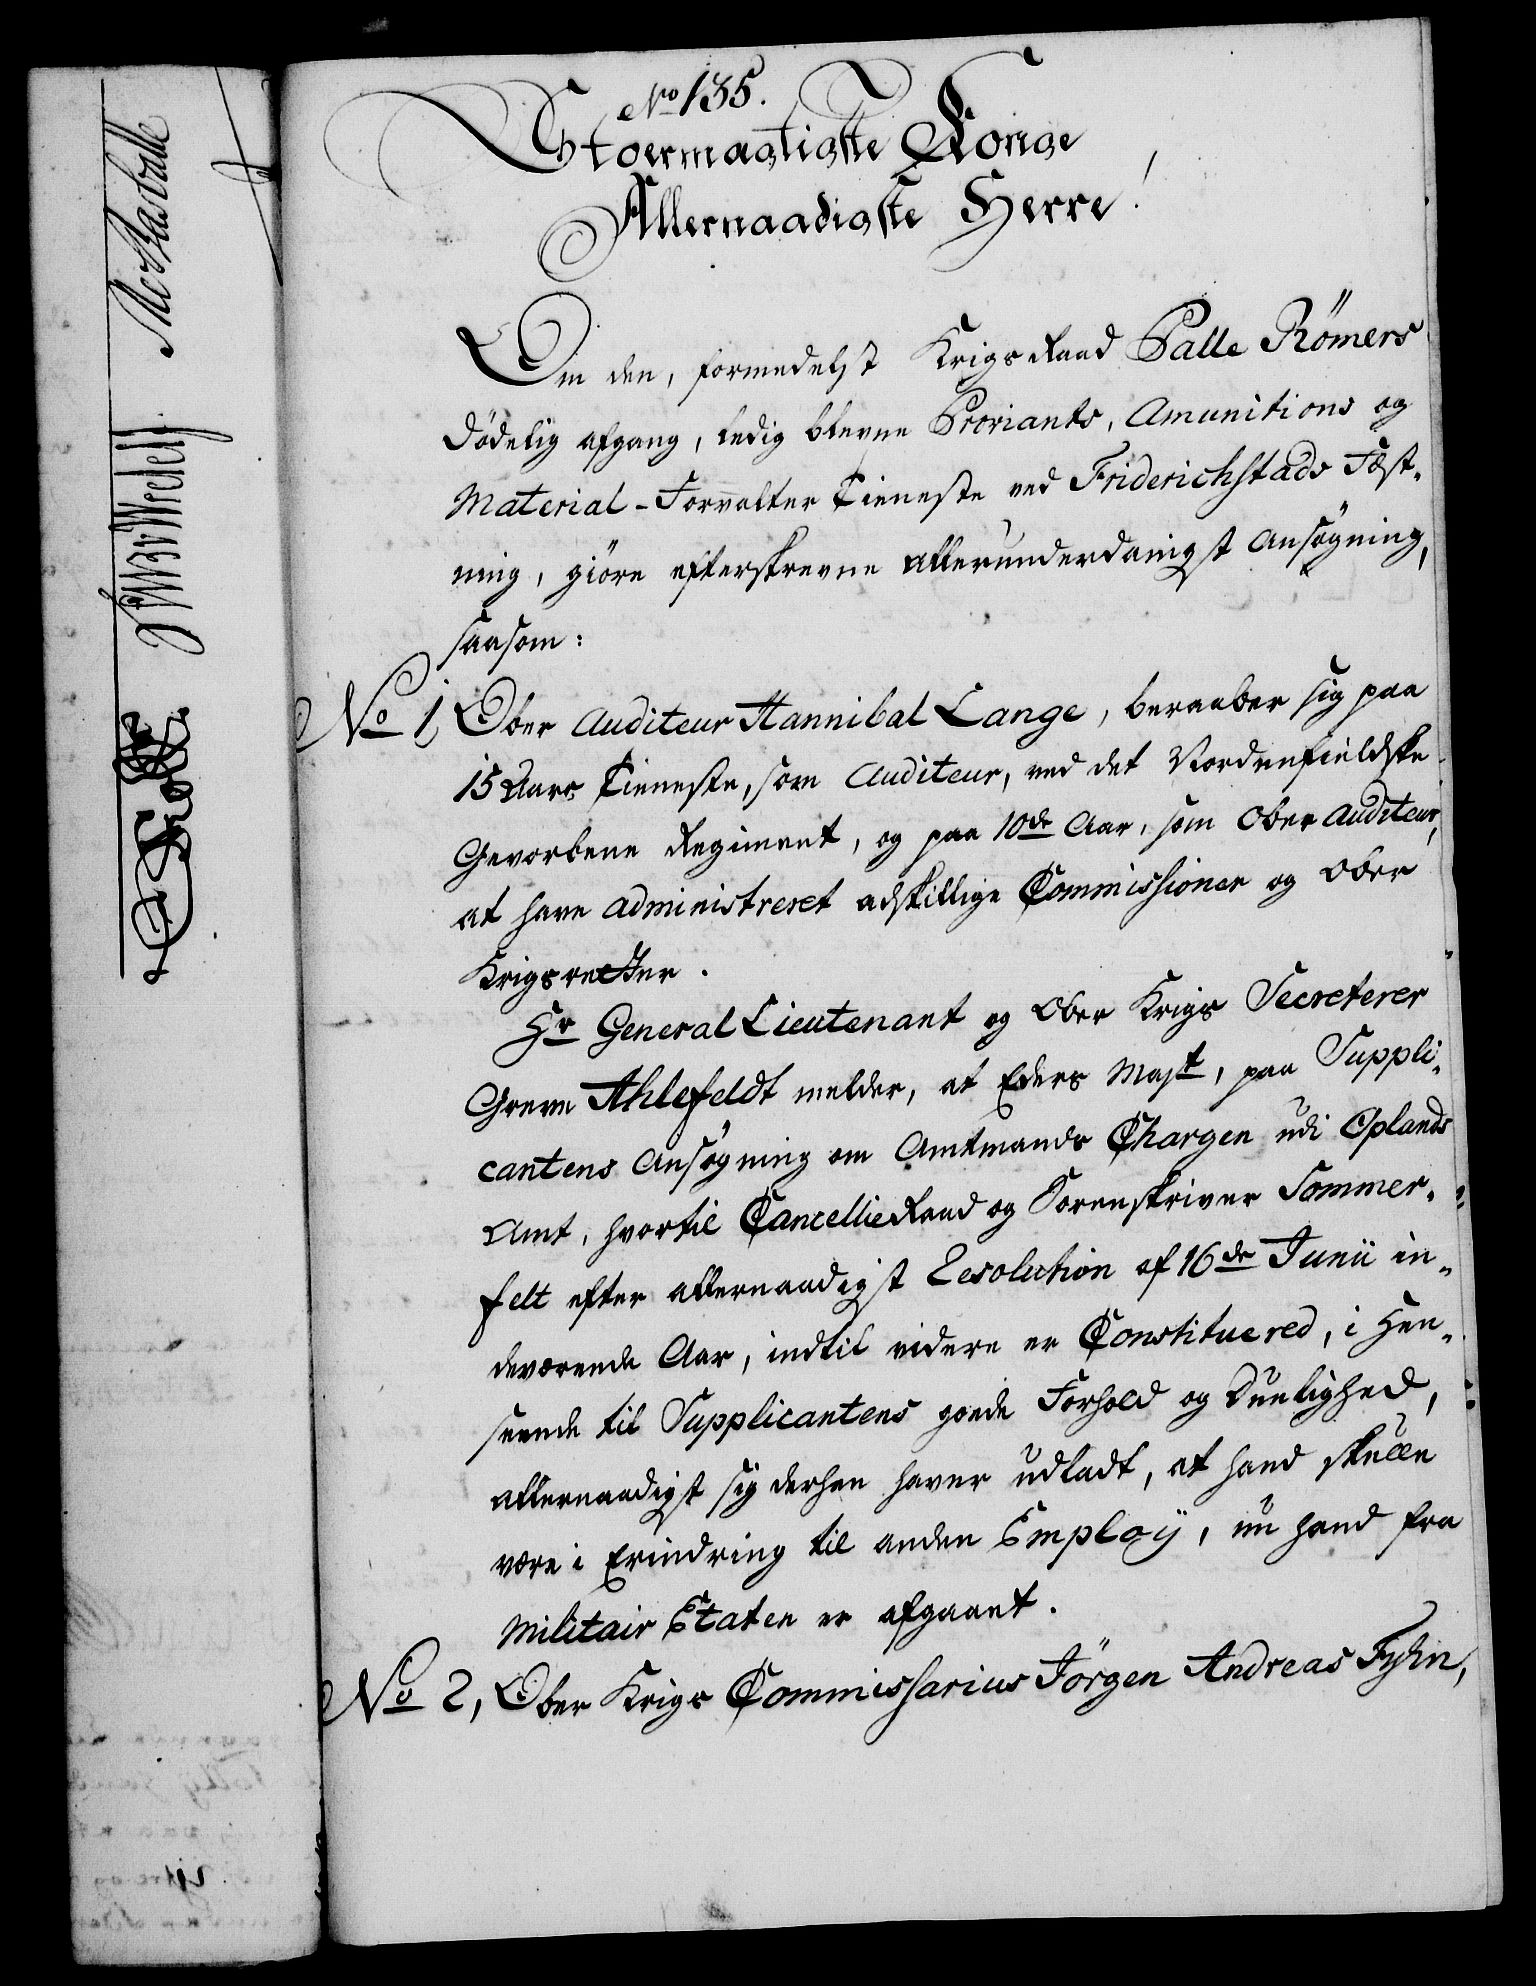 No 135.
Stoermægtigste Konge
Allernaadigste Herre!
Om den, formedelst Krigs Raad Palle Römers
dödelig afgang, ledig blevne Proviants, Amunitions og
Material-Forvalter Tieneste ved Friderichstads Fæst-
ning, giöre efterskrevne allerunderdanigst Ansögning,
saasom:
No 1, Ober Auditeur Hannibal Lange, beraaber sig paa
15 Aars Tieneste, som Auditeur, ved det Nordenfieldske
Gevorbene Regiment, og paa 10de Aar, som Ober Auditeur,
at have administreret adskillige Commissioner og Ober
Krigsretter.
Hr General Lieutenant og Ober Krigs Secreterer
Greve Ahlefeldt melder, at Eders Mayt, paa Suppli-
cantens Ansögning om Amtmands Chargen udi Oplands
Amt, hvortil Cancellie Raad og Sorenskriver Sommer-
felt efter allernaadigst Resolution af 16de Junii in-
deværende Aar, indtil videre er Constituered, i Hen-
seende til Supplicantens goede Forhold og Duelighed,
allernaadigst sig derhen haver udladt, at hand skulle
være i Erindring til anden Employ, nu hand fra
Militair Etaten er afgaaet.
No 2, Ober Krigs Commissarius Jörgen Andreas Fyhn,